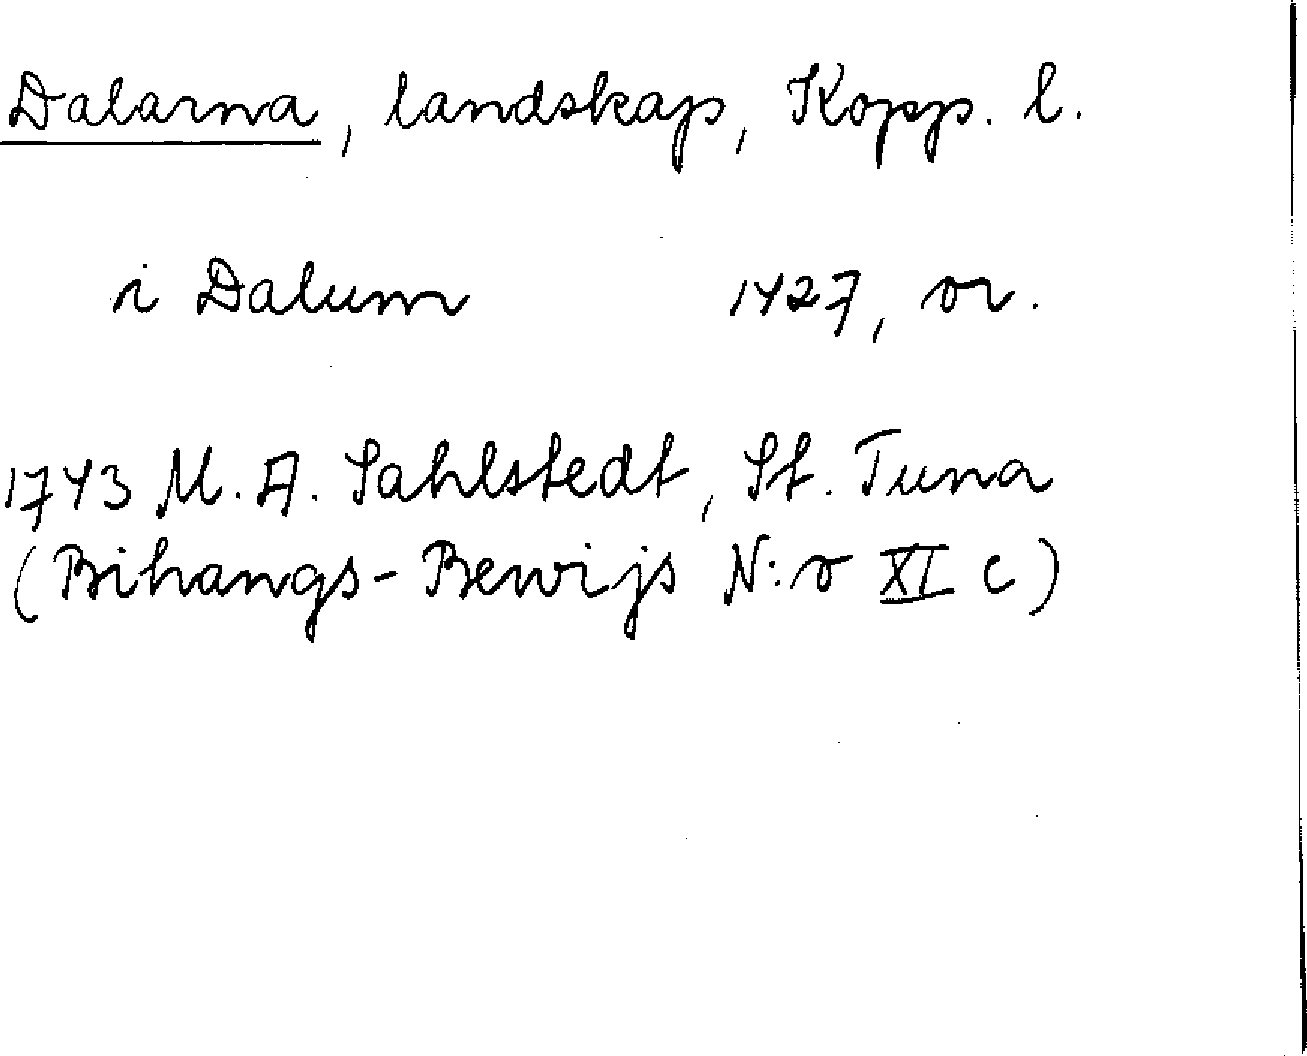 Dalarna, landskap, Kopp. l.
i Dalum 1427, or.
1743 M. A. Sahlstedt, St. Tuna
(Bihangs-Bewijs N:o XI c)